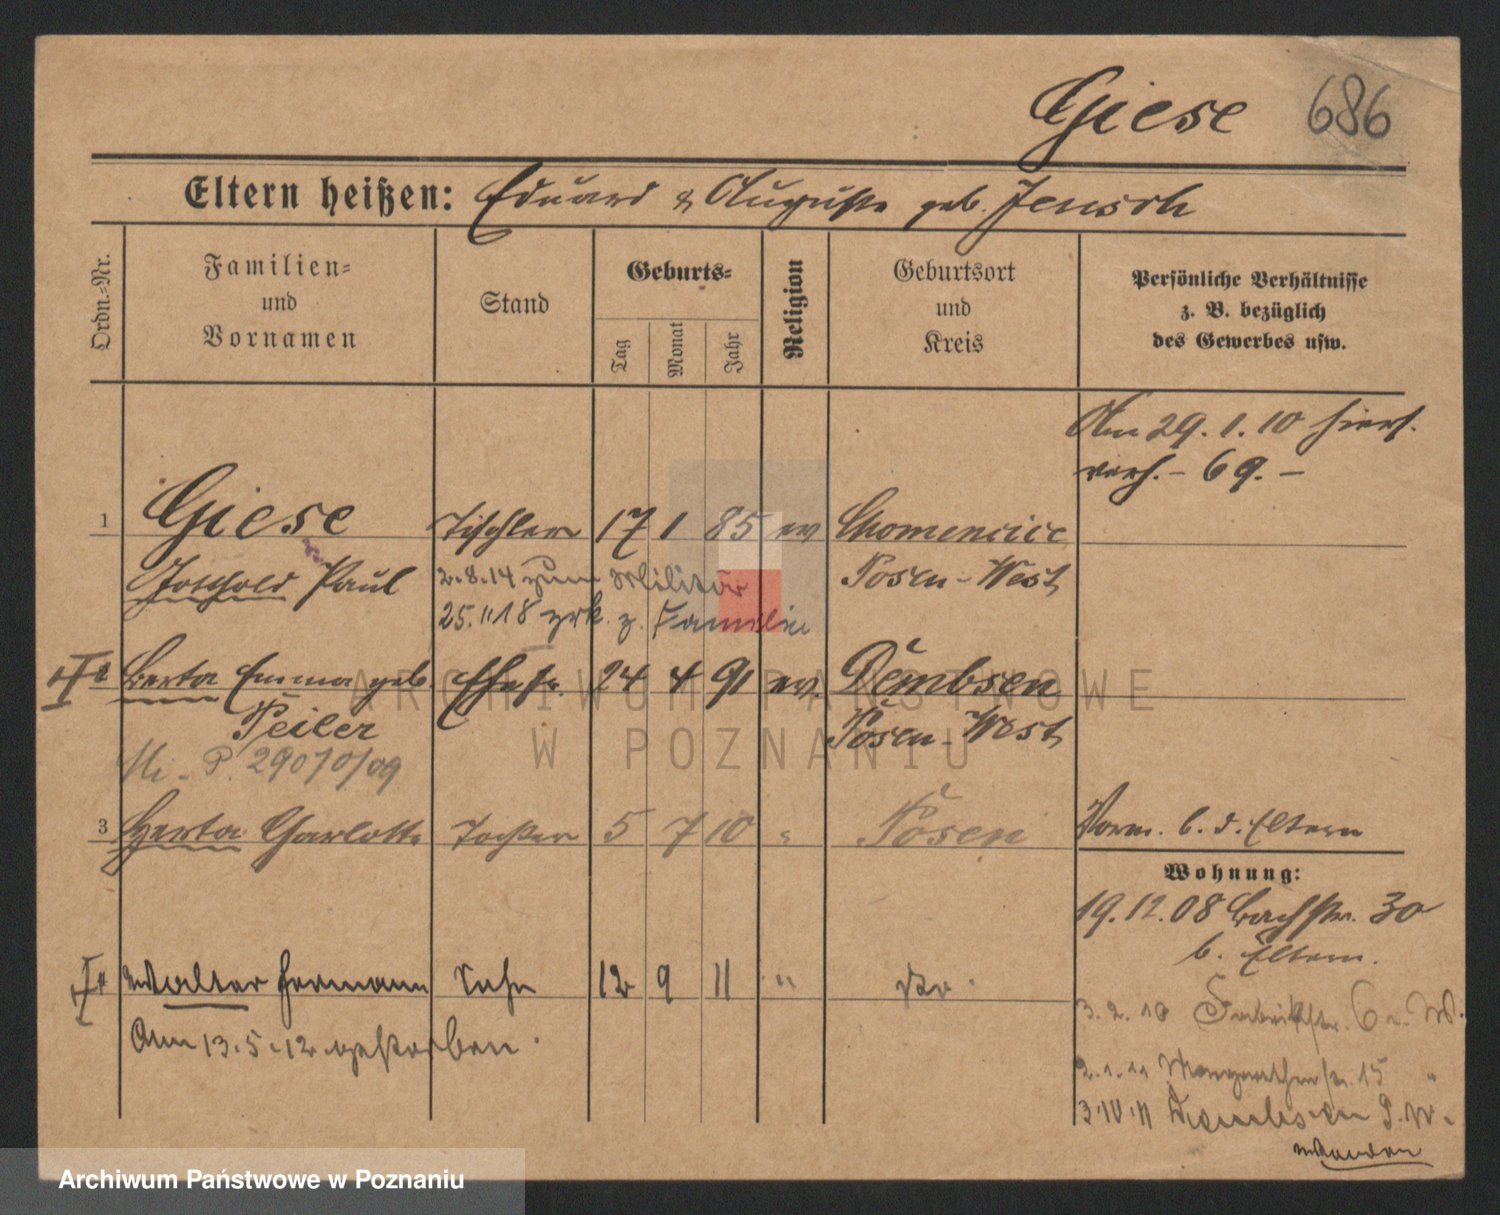 Giese 686
Eltern heißen: Eduard & Auguste geb. Jensch
Ordn.-Nr.
Familien-
und
Vornamen
Stand
Geburts-
Tag
Monat
Jahr
Religion
Geburtsort
und
Kreis
Persönliche Verhältnisse
z. B. bezüglich
des Gewerbes usw.
Am 29.1.10 hiers.
verh. - 69. -
1 Giese Tischler 17 1 85 ev Chomencice
Gotthold Paul 2.8.14 zum Militär Posen-West
25.11.18 zrk. z. Familie
Berta Emma geb. Ehefr. 24 4 91 ev. Dembsen
Peiler Posen-West
P. 29070/09
3 Herta Charlotte Tochter 5 7 10 " Posen
Vorm. b. d. Eltern
Wohnung:
19.12.08 Bachstr. 30
b. Eltern.
Walter Hermann Sohn 12 9 11 "
3.2.10 Fabrikstr. 6
Am 13.5.12 gestorben.
2.1.11 Margarethenstr. 15 "
3.IV.11 Dembsen P.W.
ARCHIWUM PAŃSTWOWE
W POZNANIU
Archiwum Państwowe w Poznaniu